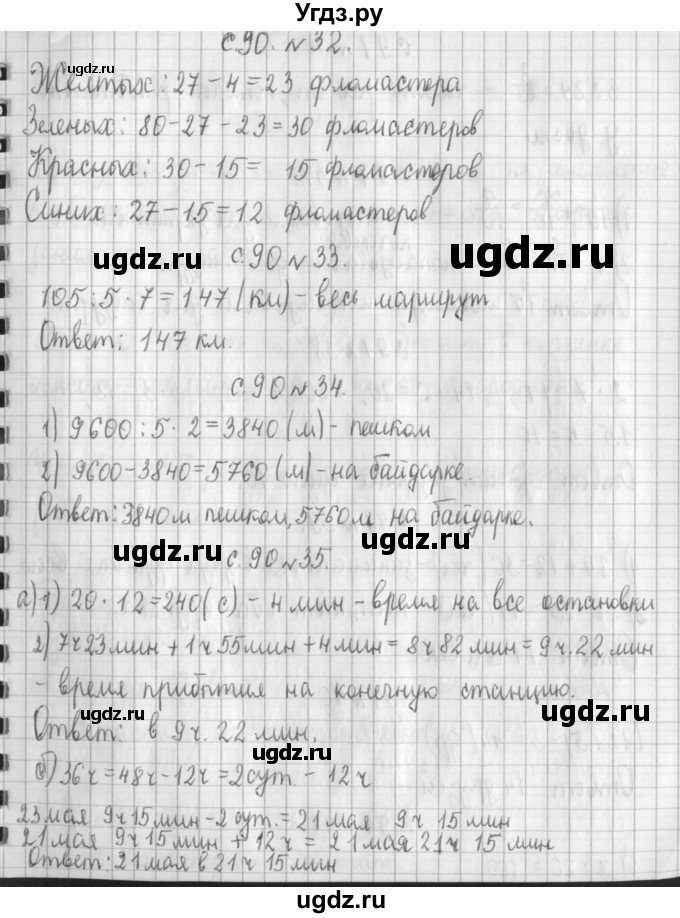 Угдз.ру
с.90. №32.
Желтых: 27 – 4 = 23 фломастера
Зеленых: 80 – 27 – 23 = 30 фломастеров
Красных: 30 – 15 = 15 фломастеров
Синих: 27 – 15 = 12 фломастеров
с.90 №33.
105 : 5 · 7 = 147 (км) – весь маршрут
Ответ: 147 км.
с.90 №34.
1) 9600 : 5 · 2 = 3840 (м) – пешком
2) 9600 – 3840 = 5760 (м) – на байдарке.
Ответ: 3840 м пешком, 5760 м на байдарке.
с.90 №35.
а) 1) 20 · 12 = 240 (с) – 4 мин – время на все остановки
2) 7 ч 23 мин + 1 ч 55 мин + 4 мин = 8 ч 82 мин = 9 ч. 22 мин
– время прибытия на конечную станцию.
Ответ: в 9 ч. 22 мин.
б) 36 ч = 48 ч – 12 ч = 2 сут. – 12 ч
23 мая 9 ч 15 мин – 2 сут. = 21 мая 9 ч 15 мин
21 мая 9 ч 15 мин + 12 ч = 21 мая 21 ч 15 мин
Ответ: 21 мая в 21 ч 15 мин
ugdz.ru
ugdz.ru
ugdz.ru
ugdz.ru
ugdz.ru
ugdz.ru
ugdz.ru
ugdz.ru
ugdz.ru
ugdz.ru